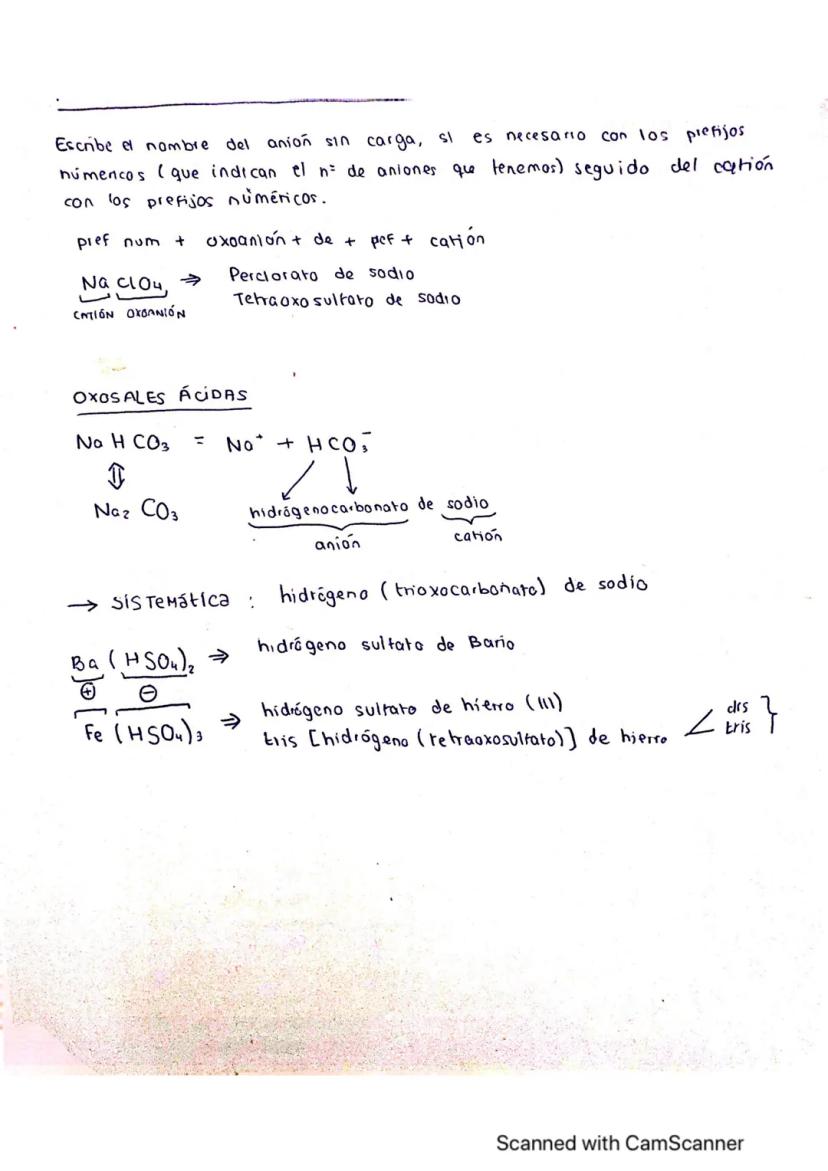 Escribe el nombre del anión sin carga, si es necesario con los prefijos
númericos (que indican el nº de aniones que tenemos) seguido del catión
con los prefijos númericos.
pref num + oxoanión + de + pref + catión
NaClO₄ ⇒ Perclorato de sodio
Tetraoxosulfato de sodio
CATIÓN OXOANIÓN
OXOSALES ÁCIDAS
Na H CO₃ = Na⁺ + HCO₃⁻
⇕
Na₂ CO₃
hidrógenocarbonato de sodio
anión catión
→ SISTEMática : hidrógeno (trioxocarbonato) de sodio
Ba (HSO₄)₂ ⇒ hidrógeno sulfato de Bario
⊕ ⊖
Fe (HSO₄)₃ ⇒ hidrógeno sulfato de hierro (III)
tris [hidrógeno (tetraoxosulfato)] de hierro
dis
tris
Scanned with CamScanner